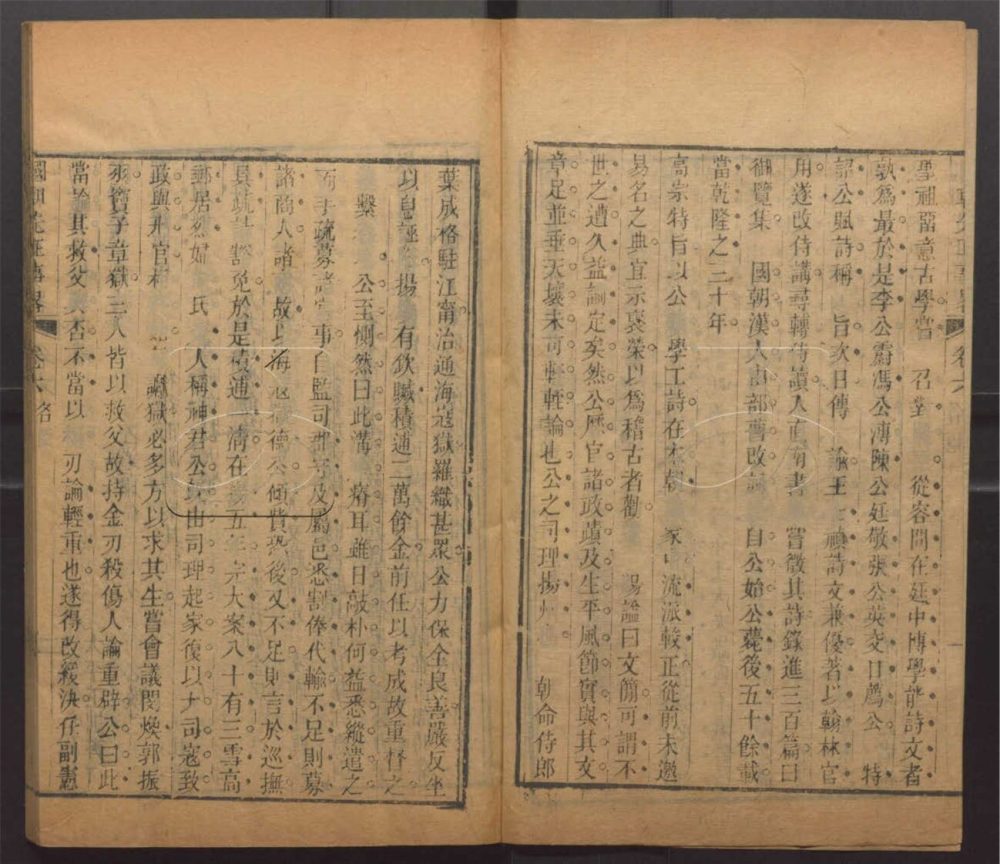 聖祖留意古學嘗 召對 從容問在廷中博學能詩文者
孰爲最於是李公霨馮公溥陳公廷敬張公英交口薦公 特
詔公賦詩稱 旨次日傳 諭王 詩文兼優著以翰林官
用遂改侍講尋轉侍讀入 南書 嘗徵其詩錄進三百篇曰
御覽集 國朝漢人由部曹改 自公始公薨後五十餘載
當乾隆之二十年
高宗特旨以公 學工詩在本朝 家 流派較正從前未邀
易名之典宜示襃榮以爲稽古者勸 賜諡曰文簡可謂不
世之遭久益論定矣然公歷官諸政蹟及生平風節實與其文
章足並垂天壤未可軒輊論也公之司理揚州 朝命侍郎
葉成格駐江甯治通海寇獄羅織甚眾公力保全良善嚴反坐
以息誣 揚 有欽贓積逋二萬餘金前任以考成故重督之
繫 公至惻然曰此溝 瘠耳雖日敲朴何益悉縱遣之
而手疏募 事自監司 及屬邑悉割俸代輸不足則募
諸商人諸 故以海 德公傾貲恐後又不足則言於巡撫
具疏 免於是積逋一清在 五年 大案八十有三雪高
郵居烈婦 氏 人稱神君公 由司理起家復以大司寇致
政與刑官相 讞獄必多方以求其生嘗會議閻煥郭振
羽竇子章獄三人皆以救父故持金刃殺傷人論重辟公曰此
當論其救父 否不當以 刃論輕重也遂得改緩決任副憲
國朝先正事略 卷六